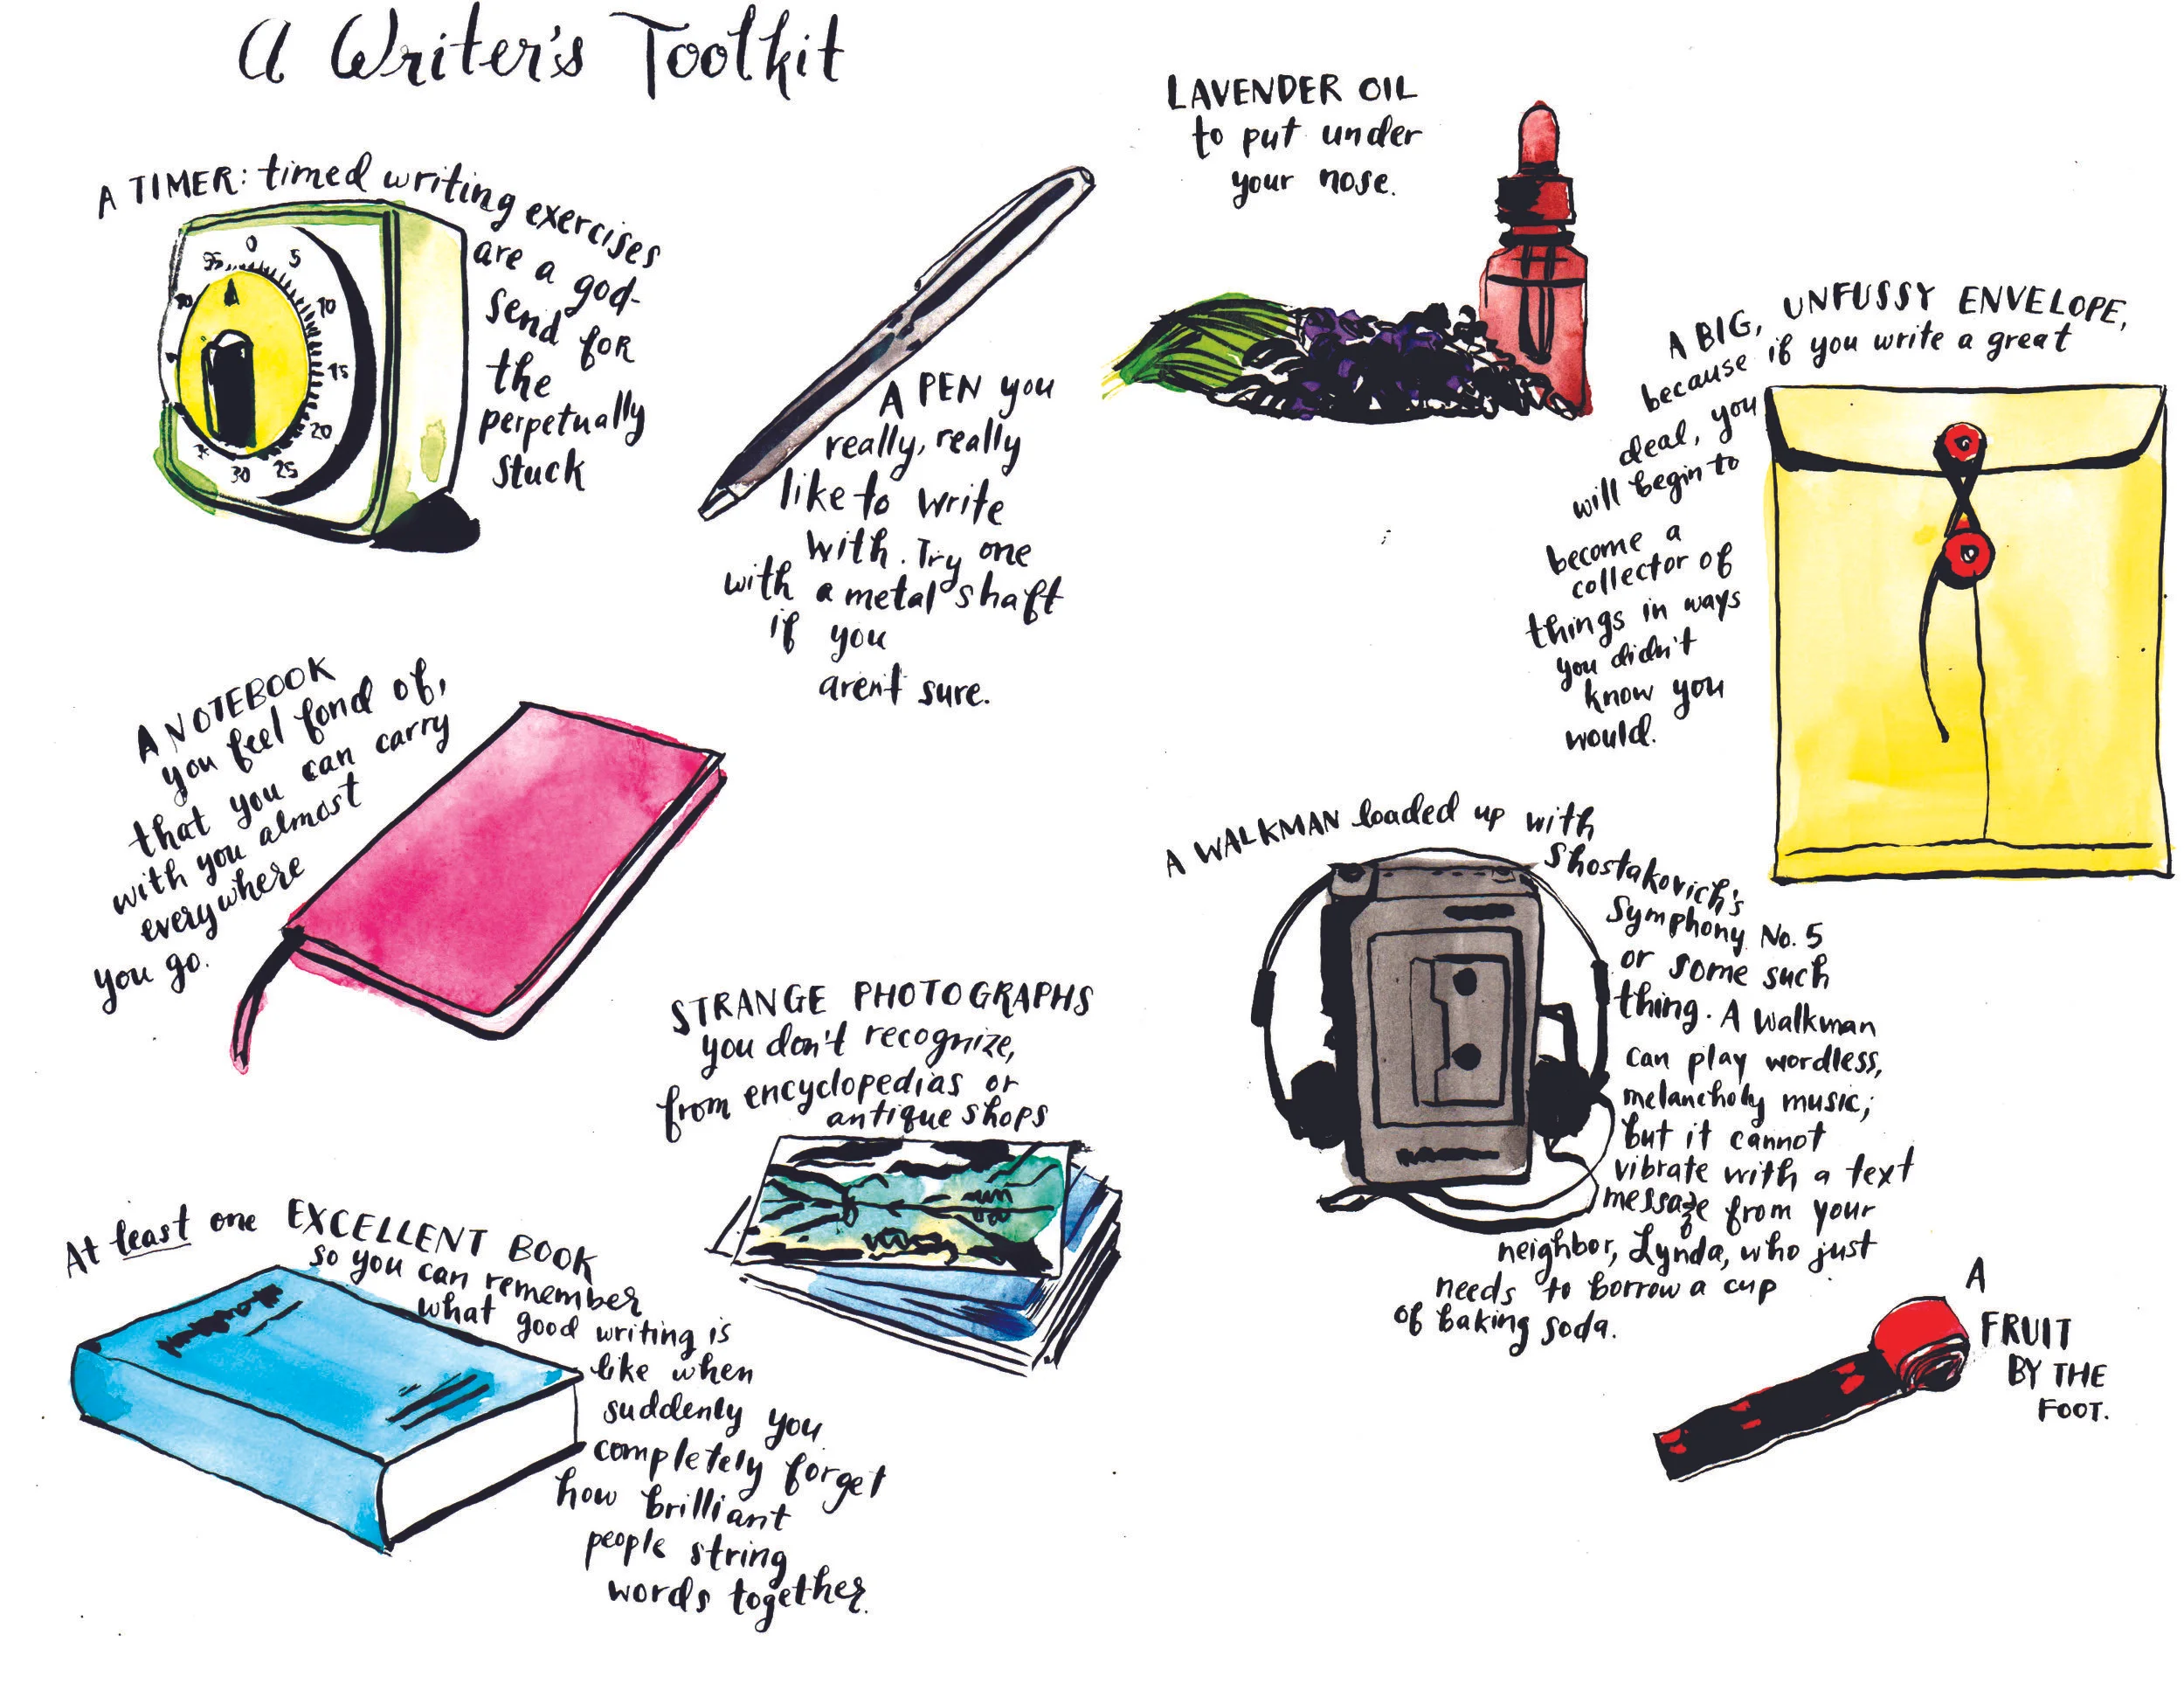 A Writer's Toolkit
A TIMER: timed writing exercises
are a god-
send for
the
perpetually
stuck
0
5
10
15
20
25
30
A PEN you
really, really
like to write
with. Try one
with a metal shaft
if you
aren't sure.
LAVENDER OIL
to put under
your nose.
A BIG, UNFUSSY ENVELOPE,
because if you write a great
deal, you
will begin to
become a
collector of
things in ways
you didn't
know you
would.
A NOTEBOOK
you feel fond of,
that you can carry
with you almost
everywhere
you go.
STRANGE PHOTOGRAPHS
you don't recognize,
from encyclopedias or
antique shops
A WALKMAN loaded up with
Shostakovich's
Symphony No. 5
or some such
thing. A Walkman
can play wordless,
melancholy music;
but it cannot
vibrate with a text
message from your
neighbor, Lynda, who just
needs to borrow a cup
of baking soda.
At least one EXCELLENT BOOK
so you can remember
what good writing is
like when
suddenly you
completely forget
how brilliant
people string
words together.
A
FRUIT
BY THE
FOOT.